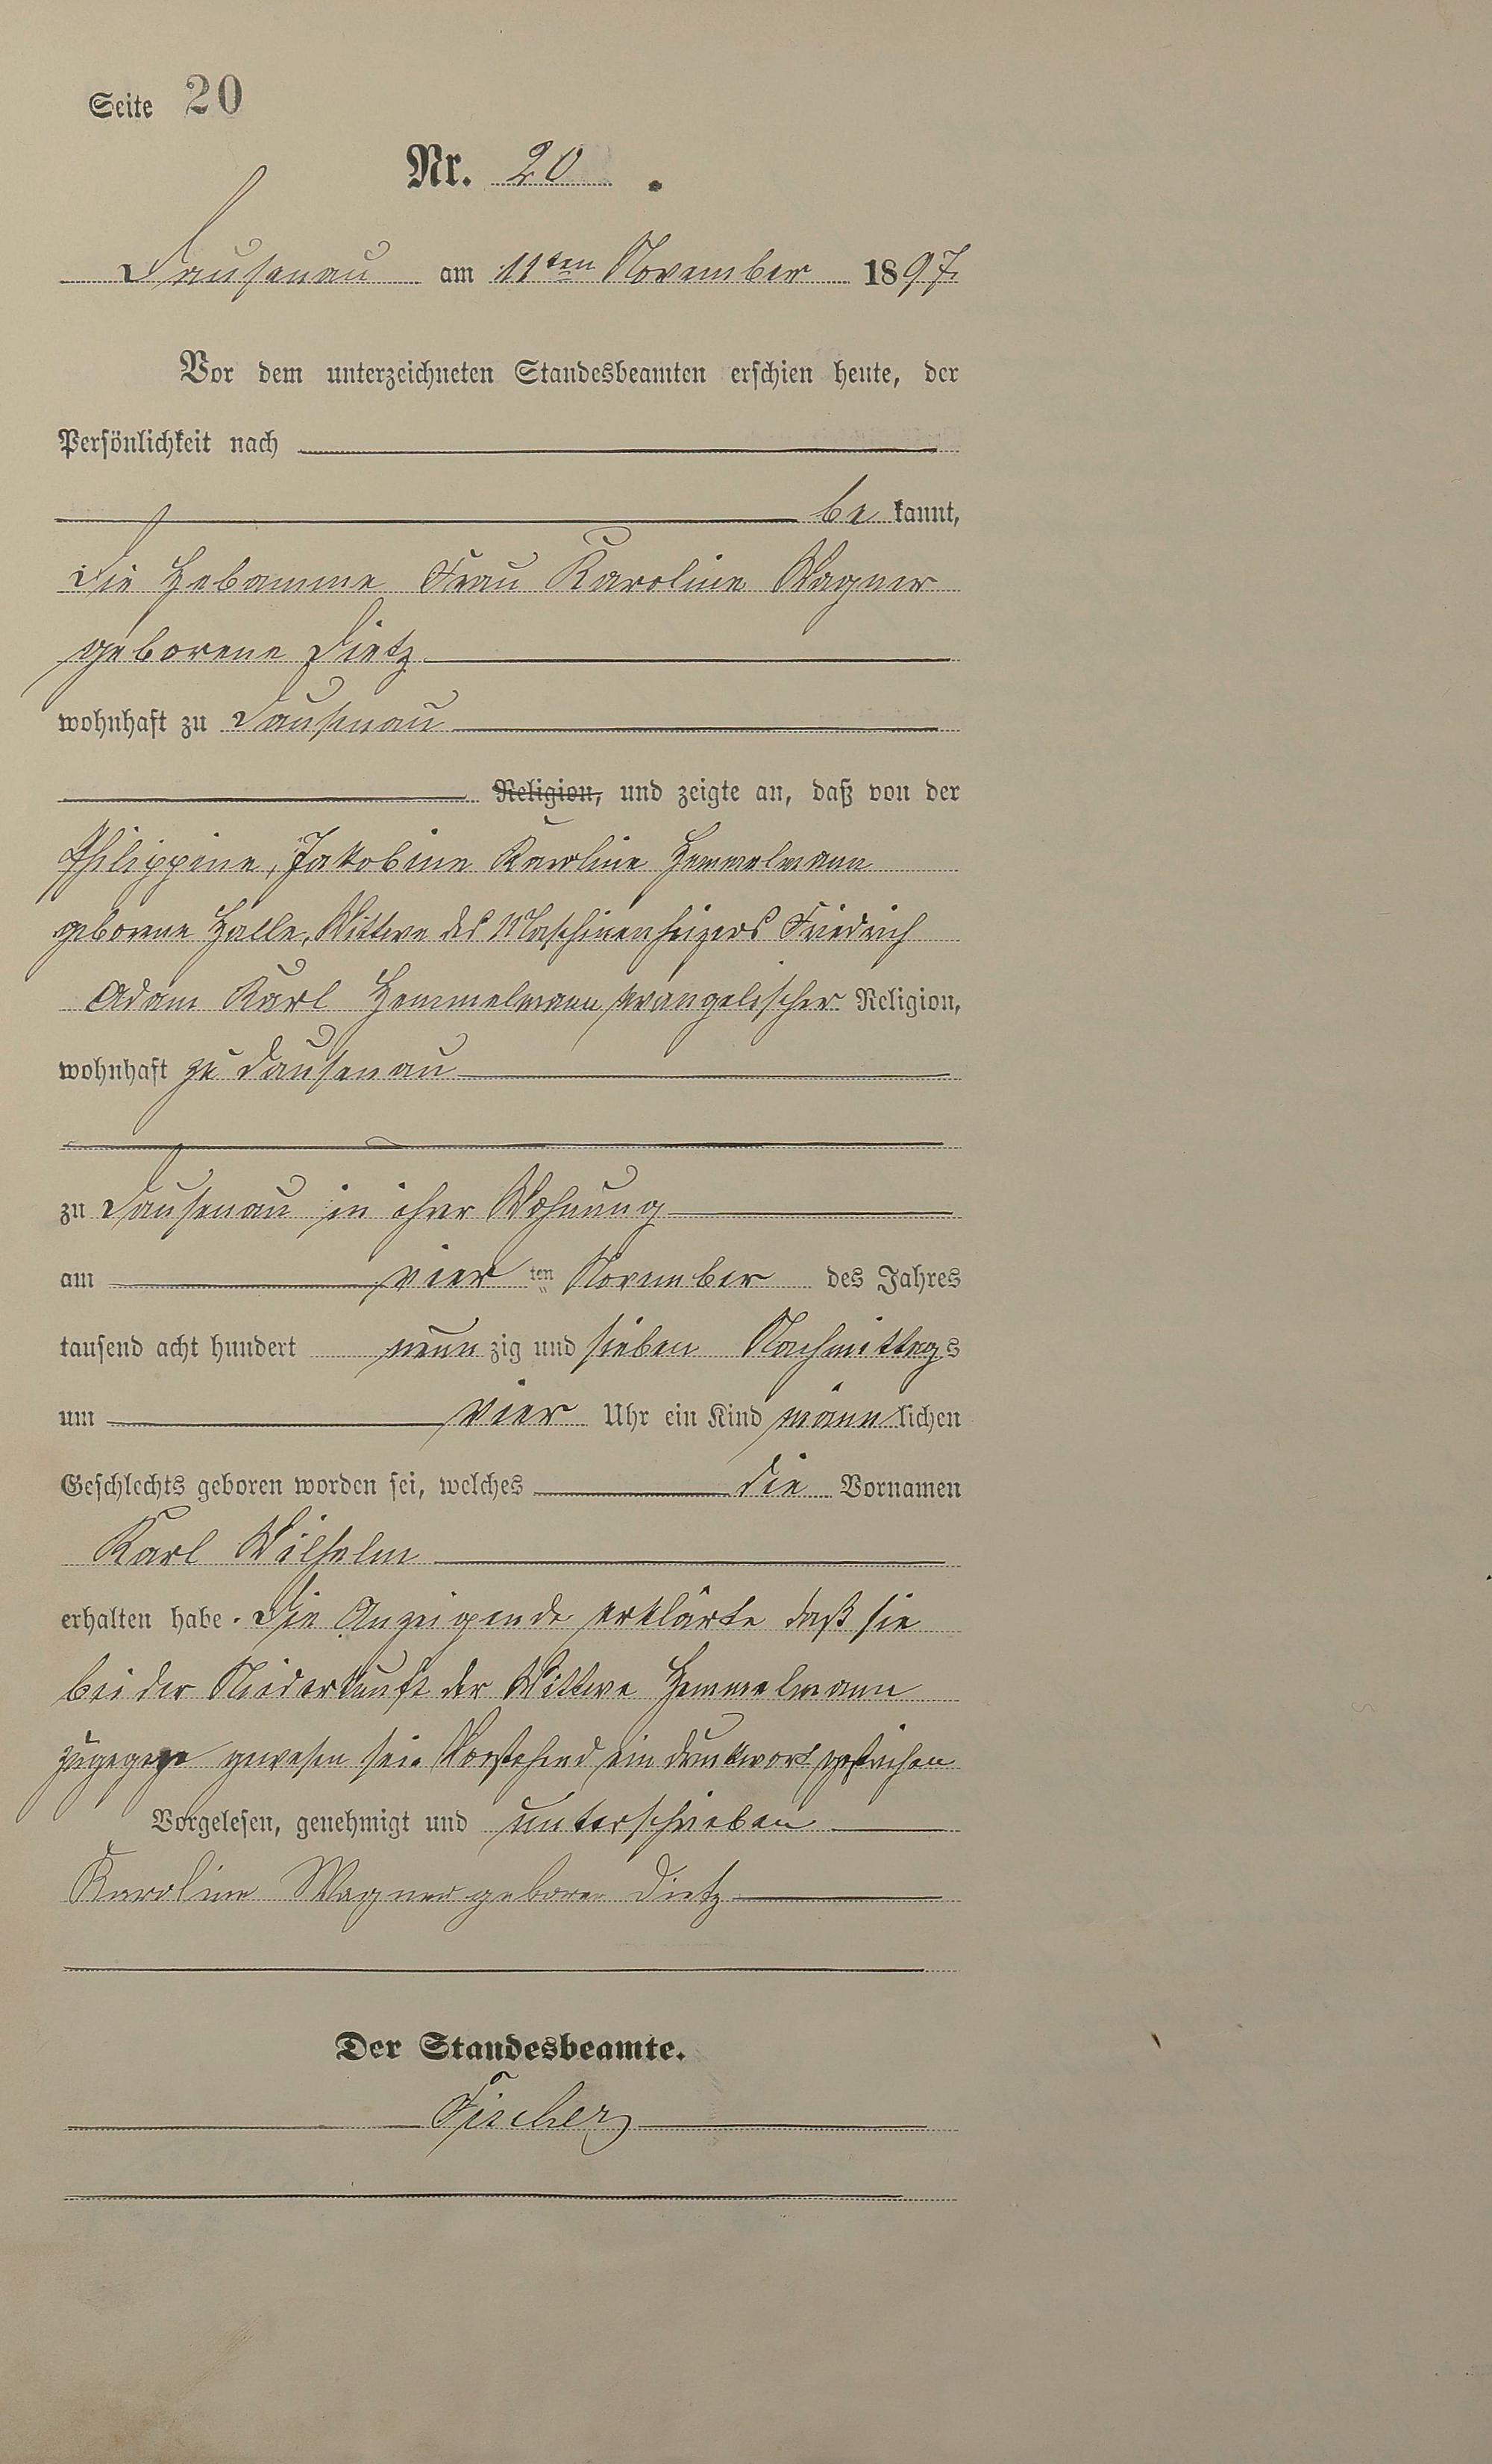 Seite 20
Nr. 20.
Dausenau am 11ten November 1897.
Vor dem unterzeichneten Standesbeamten erschien heute, der
Persönlichkeit nach
be kannt,
die Hebamme Frau Karoline Wagner
geborene Dietz
wohnhaft zu Dausenau
Religion, und zeigte an, daß von der
Philippine, Jakobine Karoline Hemmelmann
geborene Halle, Wittwe des Maschinenheizers Friedrich
Adam Karl Hemmelmann evangelischer Religion,
wohnhaft zu Dausenau
zu Dausenau in ihrer Wohnung
am vier ten November des Jahres
tausend acht hundert neun zig und sieben Nachmittags
um vier Uhr ein Kind männlichen
Geschlechts geboren worden sei, welches die Vornamen
Karl Wilhelm
erhalten habe. Die Anzeigende erklärte daß sie
bei der Niederkunft der Wittwe Hemmelmann
zugegen gewesen sei. Vorstehend ein Druckwort gestrichen
Vorgelesen, genehmigt und unterschrieben
Karoline Wagner geboren Dietz
Der Standesbeamte.
Fischer